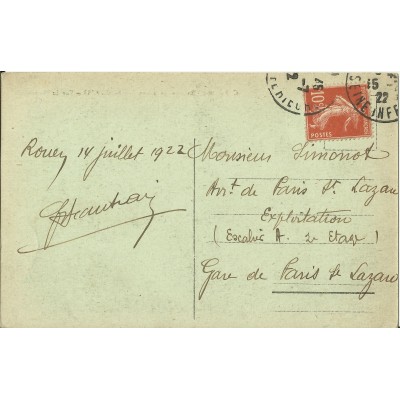 Rouen 14 juillet 1922
Monsieur Simonot
Arr.t de Paris St Lazare
Exploitation
(Escalier A. 2e Etage)
Gare de Paris St Lazare
10
POSTES
15
22
INFE